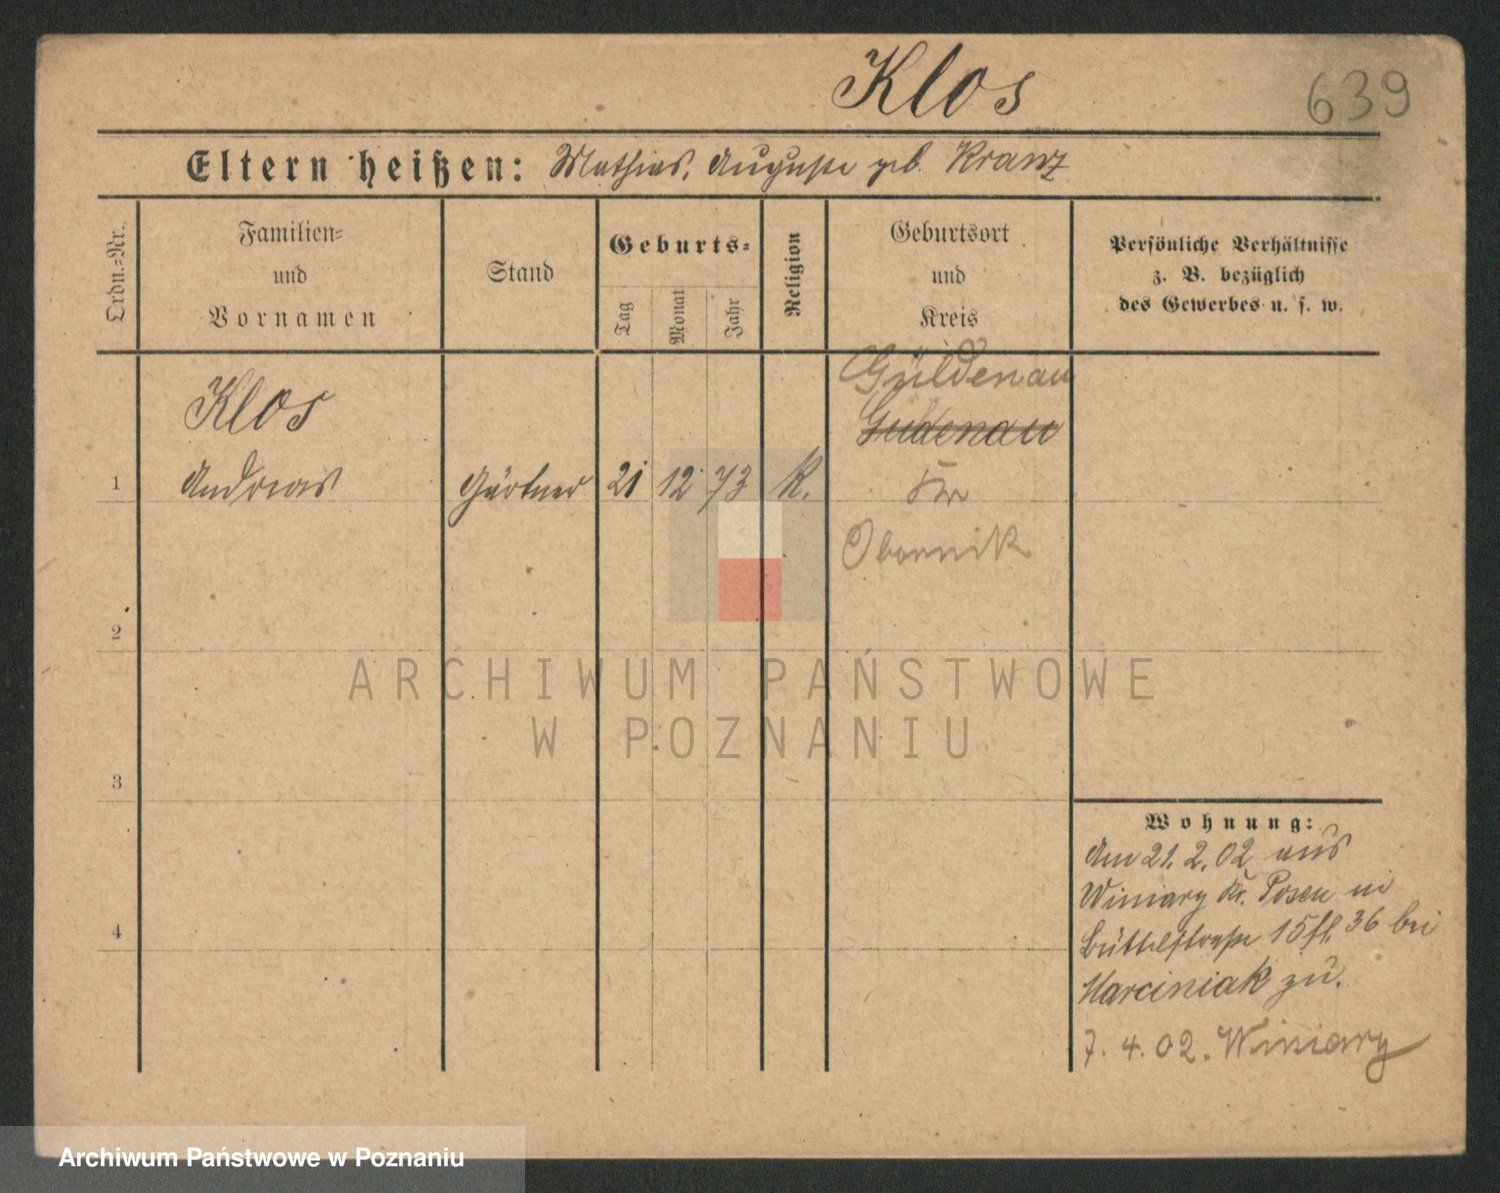 Klos
639
Eltern heißen: Mathias, Auguste geb. Kranz
Ordn.-Nr.
Familien-
und
Vornamen
Stand
Geburts-
Tag
Monat
Jahr
Religion
Geburtsort
und
Kreis
Persönliche Verhältnisse
z. B. bezüglich
des Gewerbes u. s. w.
Güldenau
Klos
Güldenau
1
Andreas
Gärtner
21
12
73
K.
Kr
Obornik
2
ARCHIWUM PAŃSTWOWE
W POZNANIU
3
Wohnung:
Am 21. 2. 02 aus
Winiary Kr. Posen in
4
Büttelstraße 15 36 bei
Marciniak zu.
7. 4. 02. Winiary
Archiwum Państwowe w Poznaniu